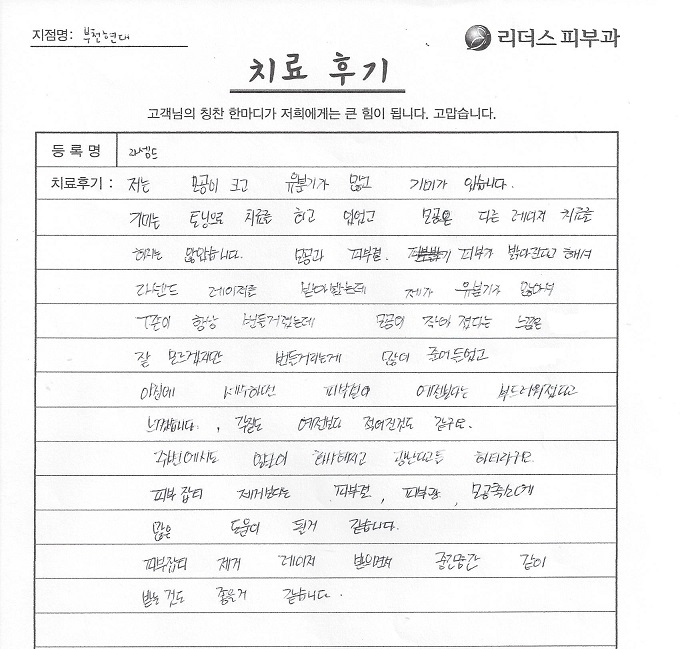 지점명: 부천현대
리더스 피부과
치료 후기
고객님의 칭찬 한마디가 저희에게는 큰 힘이 됩니다. 고맙습니다.
등 록 명 라셈드
치료후기 : 저는 모공이 크고 유분기가 많고 기미가 있습니다.
기미는 토닝으로 치료를 하고 있었고 모공은 다른 레이저 치료를
하지는 않았습니다. 모공과 피부결, 피부가 밝아진다고 해서
라셈드 레이저를 받아봤는데 제가 유분기가 많아서
T존이 항상 번들거렸는데 모공이 작아 졌다는 느낌은
잘 모르겠지만 번들거리는게 많이 줄어들었고
아침에 세수하면 피부결이 예전보다는 부드러워졌다고
느꼈습니다. , 각질도 예전보다 적어진것도 같구요.
주변에서도 얼굴이 화사해지고 광난다고들 하더라구요.
피부 잡티 제거보다는 피부결, 피부광, 모공축소에
많은 도움이 된거 같습니다.
피부잡티 제거 레이저 받으면서 중간중간 같이
받는 것도 좋을거 같습니다.